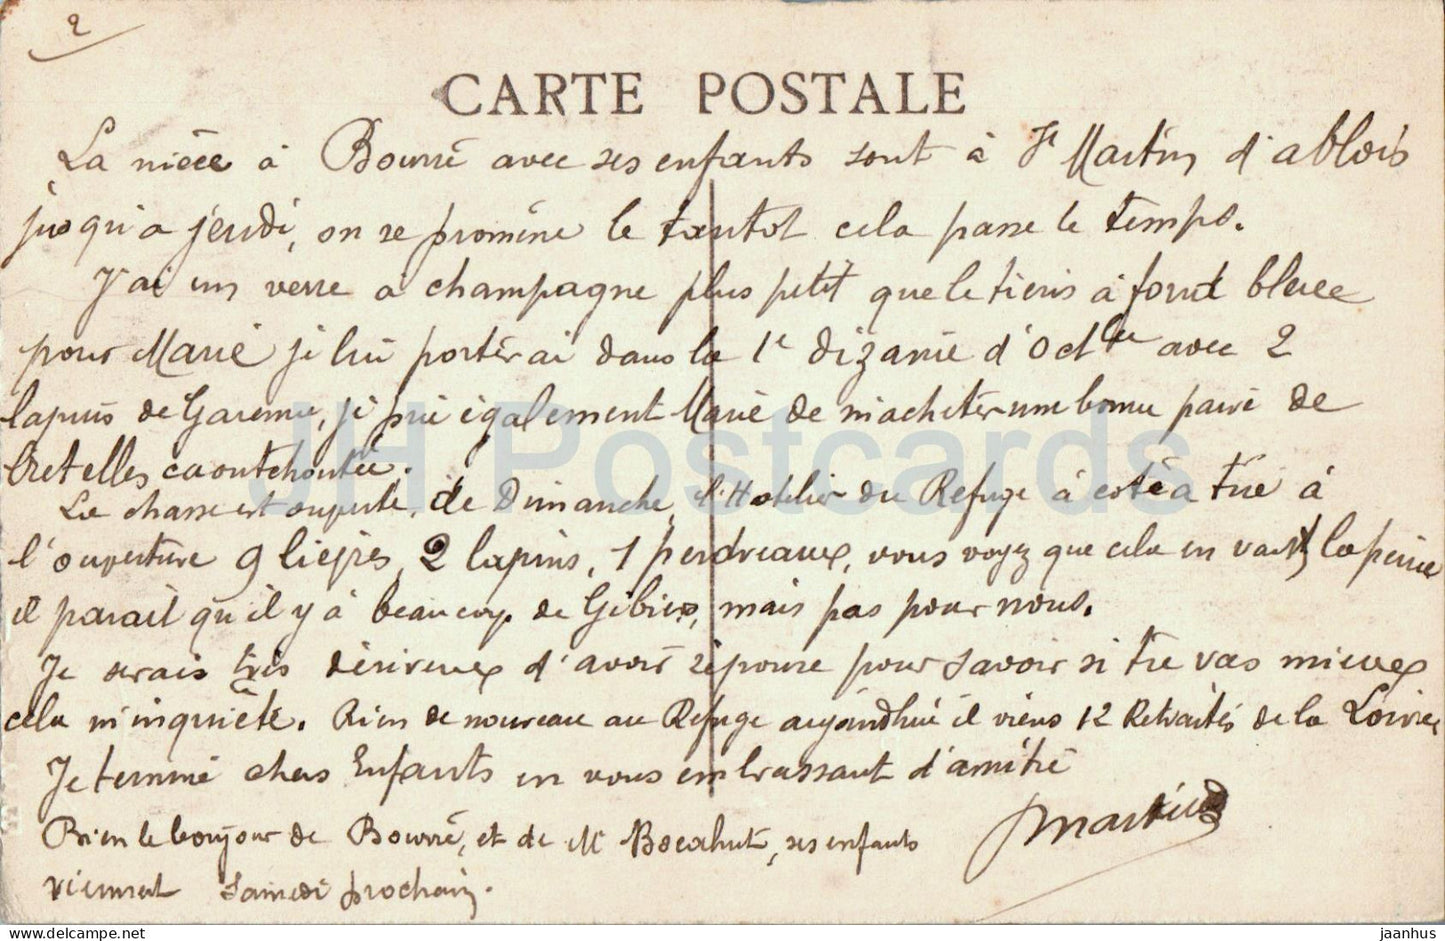 2
CARTE POSTALE
La nièce à Bourré avec ses enfants sont à St Martin d'ablois
jusqu'a jeudi, on se promène le tantot cela passe le temps.
J'ai un verre à champagne plus petit que le tiens à fond bleue
pour Marie je lui porterai dans la 1e dizaine d'Octbre avec 2
lapins de Garenne, je prie également Marie de m'acheter une bonne paire de
Bretelles caoutchoutée.
La chasse est ouverte, de Dimanche, l'Hotelier du Refuge à coté a tué à
l'ouverture 9 lièvres, 2 lapins, 1 perdreaux, vous voyez que cela en vaut la peine
il parait qu'il y à beaucoup de Gibiers, mais pas pour nous.
Je serais très désireux d'avoir réponse pour savoir si tu vas mieux
cela m'inquiète. Rien de nouveau au Refuge aujourd'hui il viens 12 Retraités de la Loire
Je termine chers Enfants en vous embrassant d'amitié
Martin
Bien le bonjour de Bourré, et de Mr Bocahut, ses enfants
viennent Samedi prochain.
JH Postcards
www.delcampe.net
jaanhus